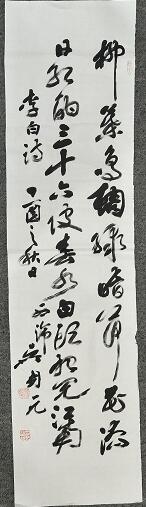 柳葉鳴蜩綠暗荷花落
日紅酣三十六陂春水白頭想見江南
李白诗 丁酉之秋日